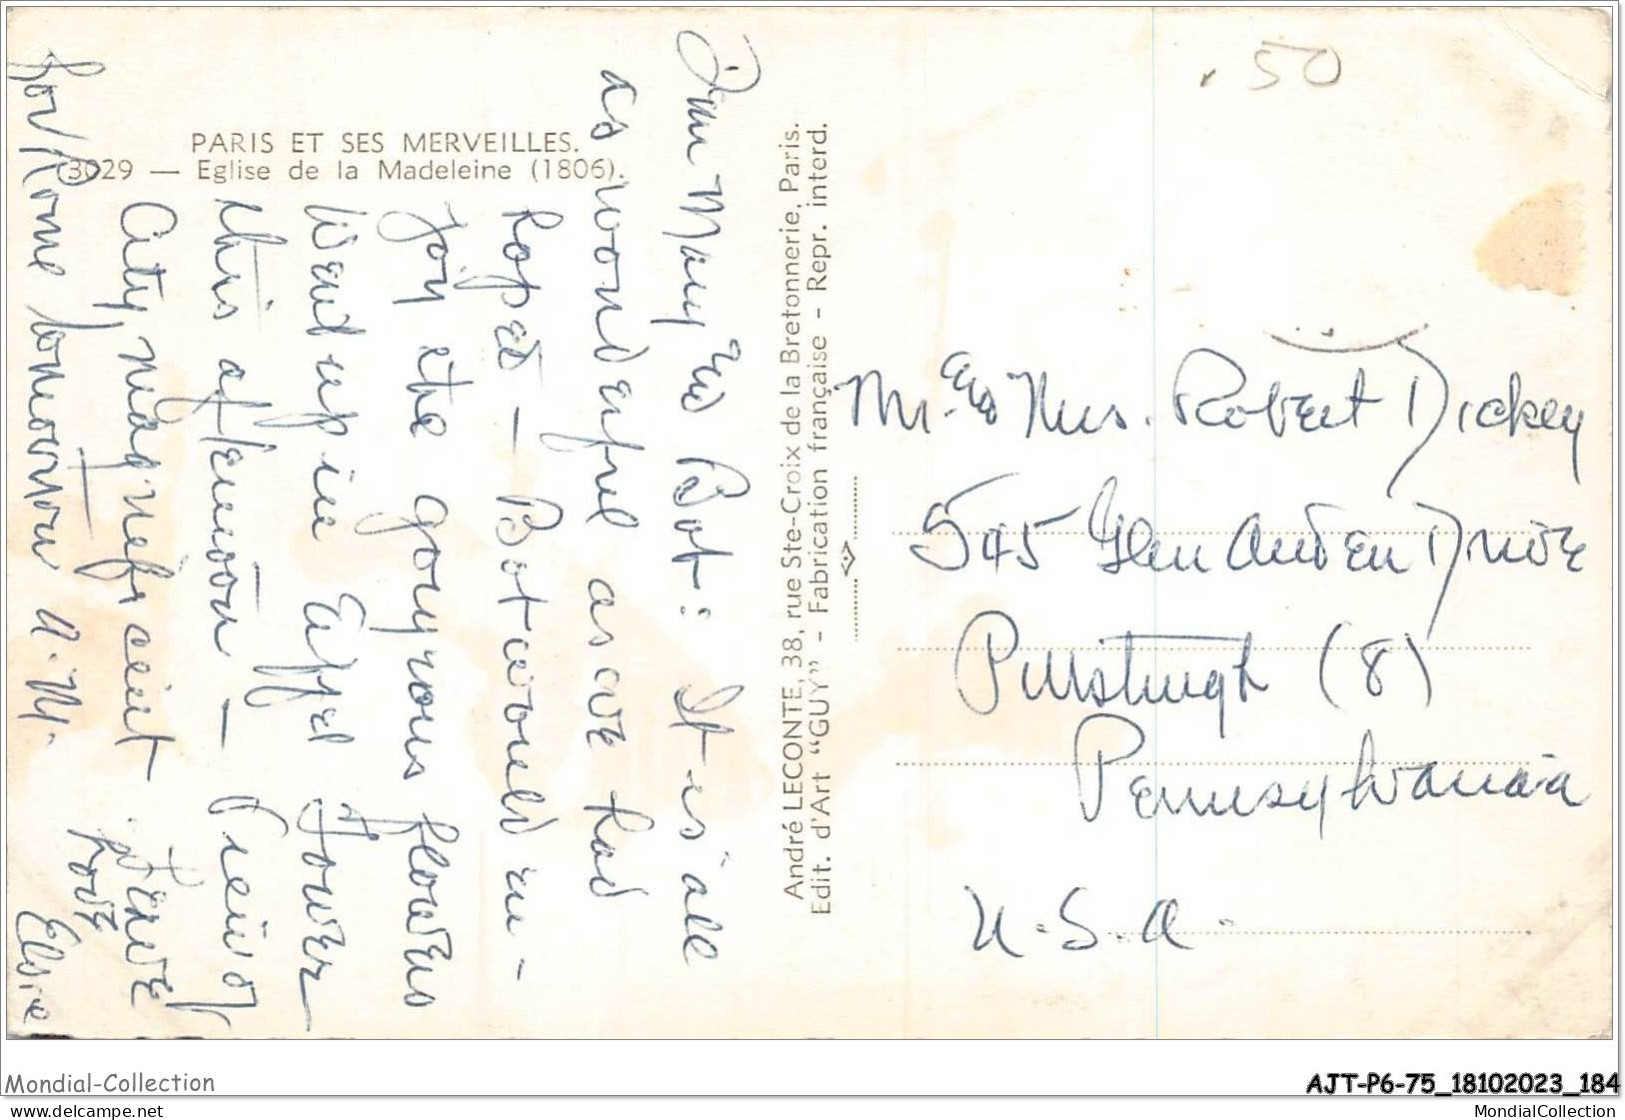 PARIS ET SES MERVEILLES.
3029 — Eglise de la Madeleine (1806).
Mary and Bob: It is all
as wonderful as we had
hoped — Bob would en-
joy the gorgeous flowers
Went up in Eiffel Tower
this afternoon — View of
City magnificent. Leave
for Rome tomorrow A.M.
Love
Elsie
André LECONTE, 38, rue Ste-Croix de la Bretonnerie, Paris.
Edit. d'Art "GUY" - Fabrication française - Repr. interd.
.50
Mr. and Mrs. Robert Dickey
545 Glen Arden Drive
Pittsburgh (8)
Pennsylvania
U.S.A.
Mondial-Collection
AJT-P6-75_18102023_184
www.delcampe.net
MondialCollection